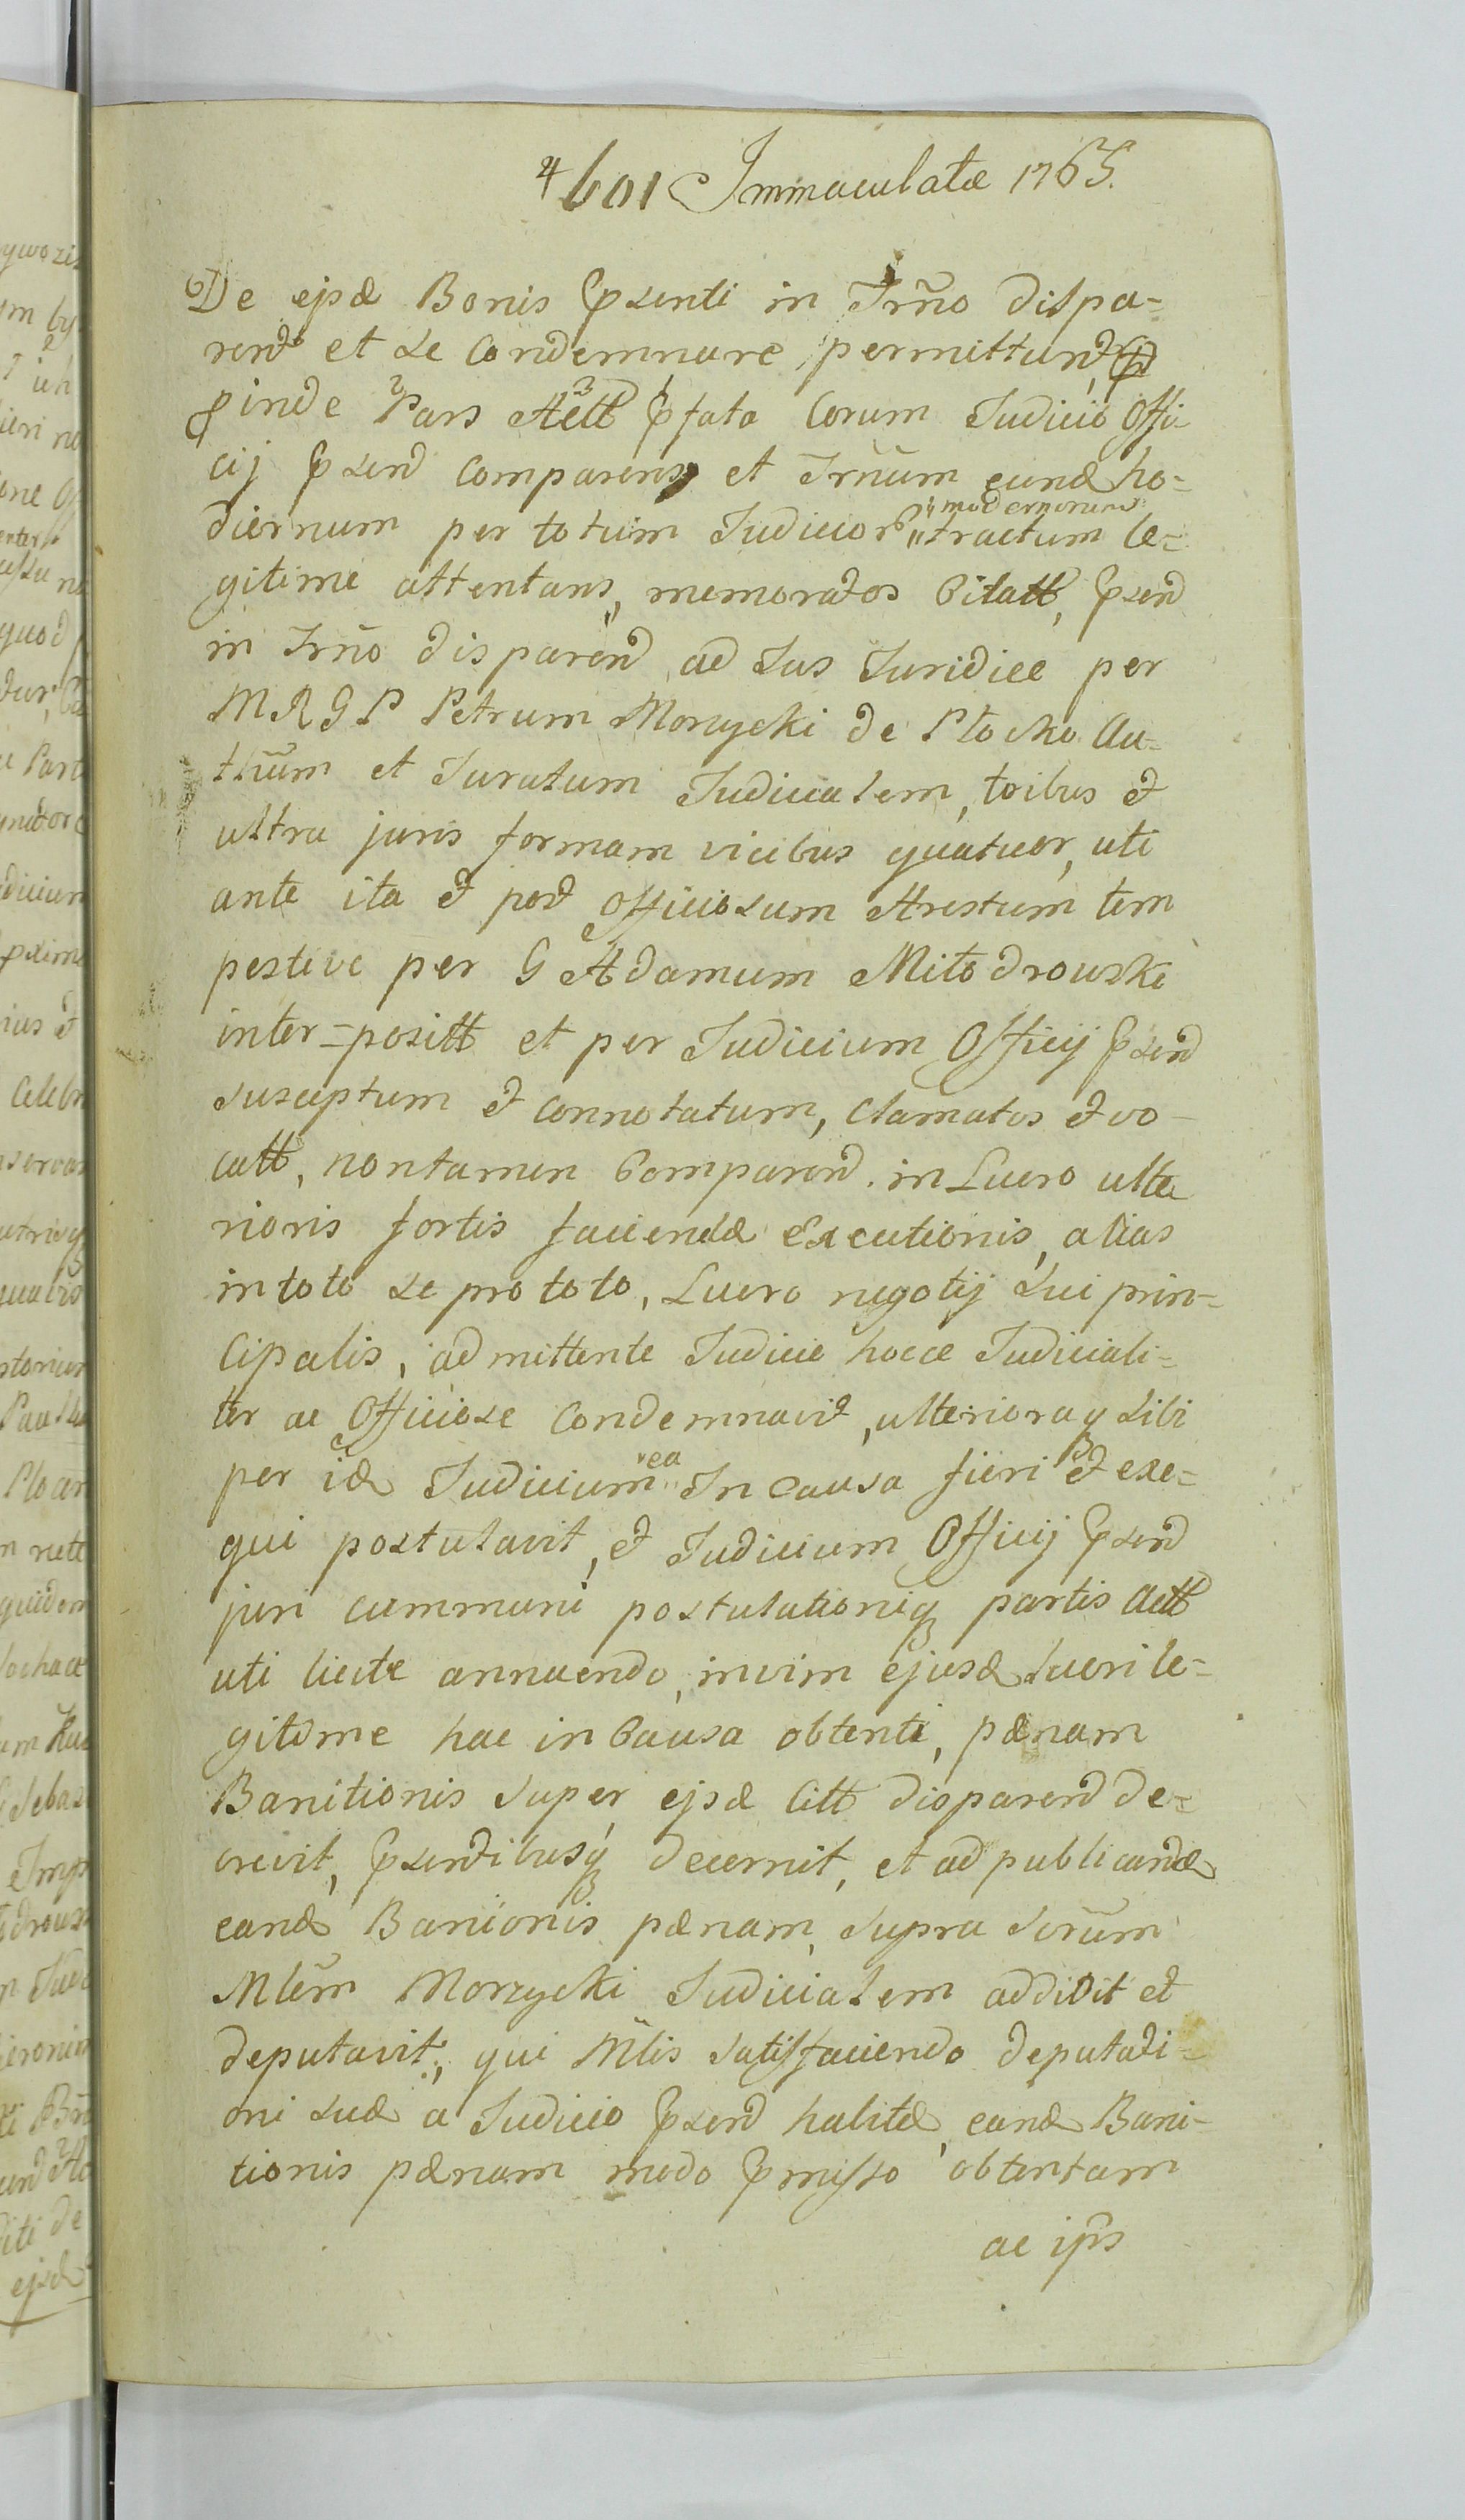 4 601 Immaculatæ 1765.
De ejsdæ Bonis Pæsenti in Trño dispa=
rend et se Condemnare permittund,
pinde Pars Actt Pfata Coram Judicio Offi-
cij Psend Comparens et Trñum eund ho=
diernum per totum Judicior modernorum tractum le=
gitime attentans, memoratos Citatt, Psend
in Trño disparend ad Jus Juridice per
M R G P Petrum Morzycki de Płocko Au=
thũm et Juratum Judicialem, toibus et
ultra juris formam vicibus quatuor, uti
ante ita et post Officiosum Arestum tem
pestive per G Adamum Miłodrowski
inter=positt et per Judicium Officij Psend
susceptum et connotatum, Clamatos et vo-
catt, nontamen Comparend. in Lucro ulte
rioris fortis faciendæ Executionis, alias
in toto se pro toto, Lucro negotij sui prin=
Cipalis, admittente Judicio hocce Judiciali=
ter ac Officiose Condemnavit, ulterioraq sibi
per id Judicium rea In Causa fieri et exe=
qui postulavit, et Judicium Officij Psend
juri communi postulationiq partis Actt
uti licite annuendo, invim ejusd Lucri le=
gitime hac in Causa obtenti, pænam
Banitionis super ejsd Citt disparend de=
crevit, Psendibusq decernit, et ad publicand
eand Banionis pænam, supra Scrũm
Mlem Morzycki Judicialem addidit et
deputavit, qui Mlis satisfaciendo deputati=
oni suæ a Judicio Psend habitæ, eand Bani-
tionis pænam modo Pmisso obtentam
ac ips